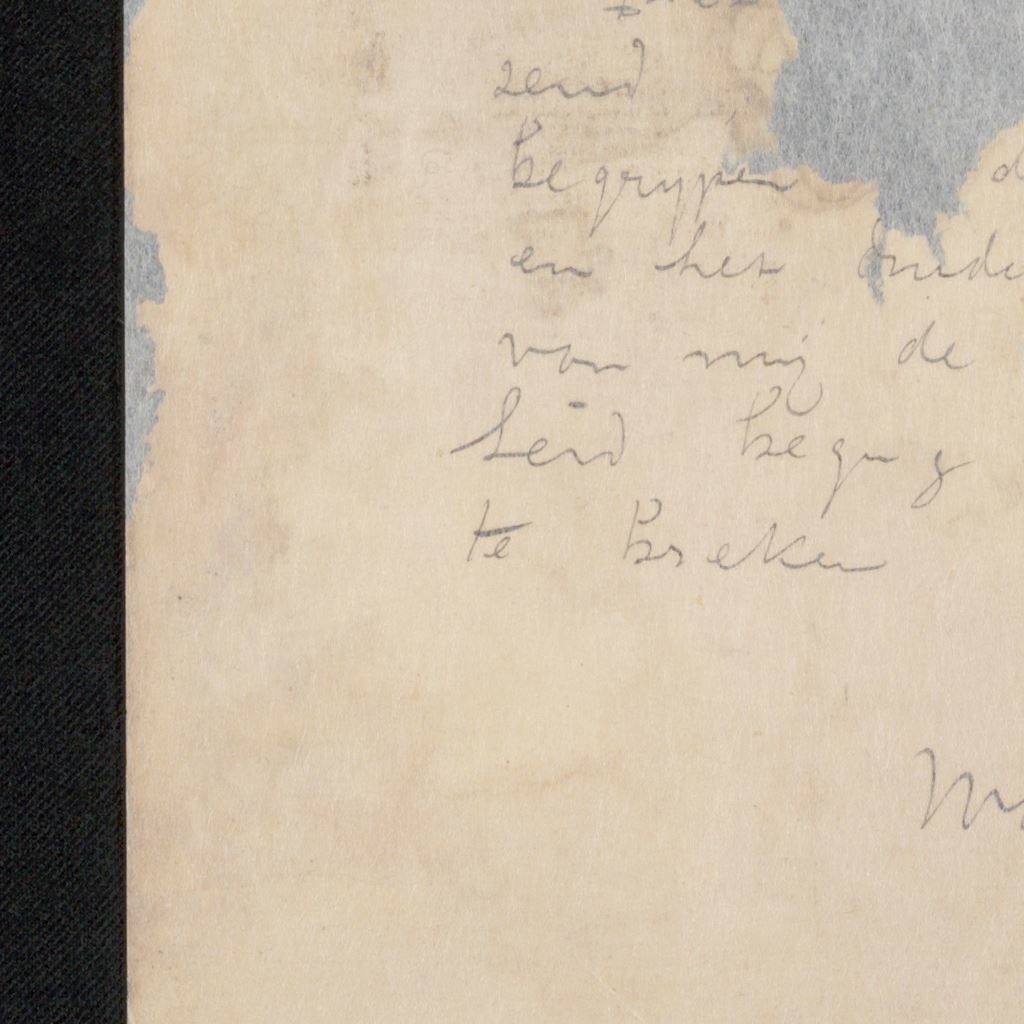 zend
begrypen d
en het oude
van mij de
heid begung
te breken